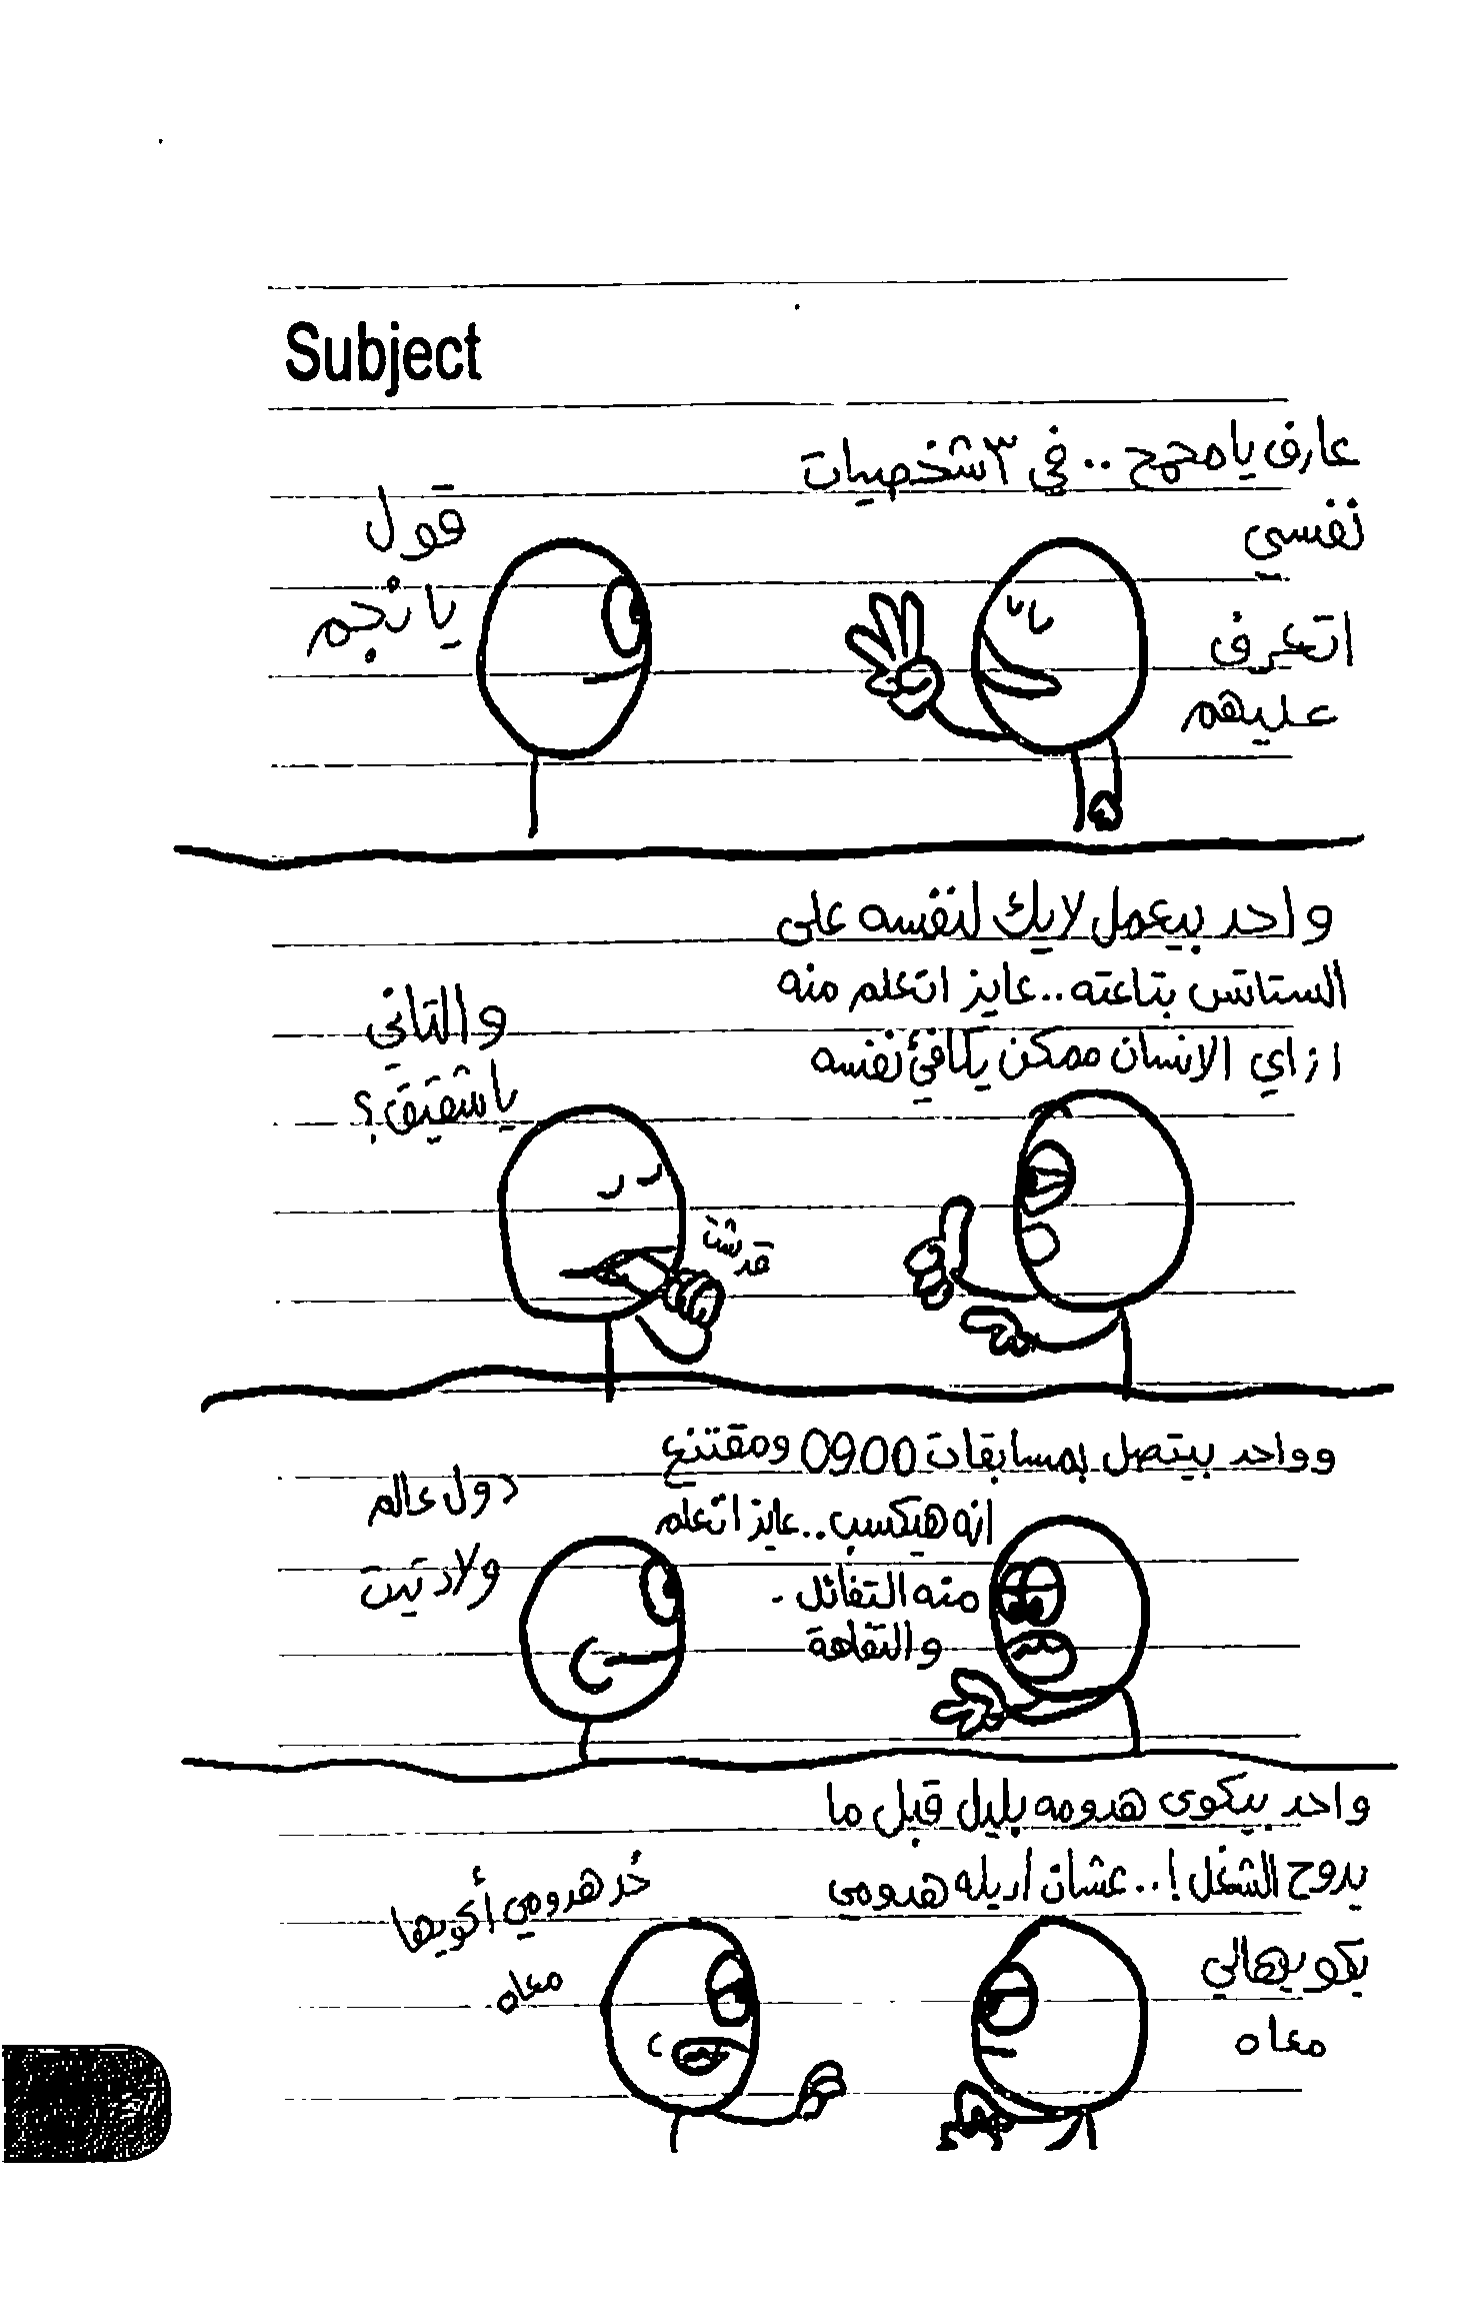 Subject
عارف يا محمح .. في ٣ شخصيات
نفسي
اتعرف
عليهم
قول
يا نجم
واحد بيعمل لايك لنفسه على
الستاتس بتاعته .. عايز اتعلم منه
ازاي الانسان ممكن يكافئ نفسه
والتاني
يا شقيق؟
قرشت
وواحد بيتصل بمسابقات 0900 ومقتنع
انه هيكسب .. عايز اتعلم
منه التفائل .
والتفاهة
دول عالم
ولاد تيت
واحد بيكوى هدومه بليل قبل ما
يروح الشغل ! .. عشان اديله هدومي
يكويهالي
معاه
خد هدومي أكويها
معاه